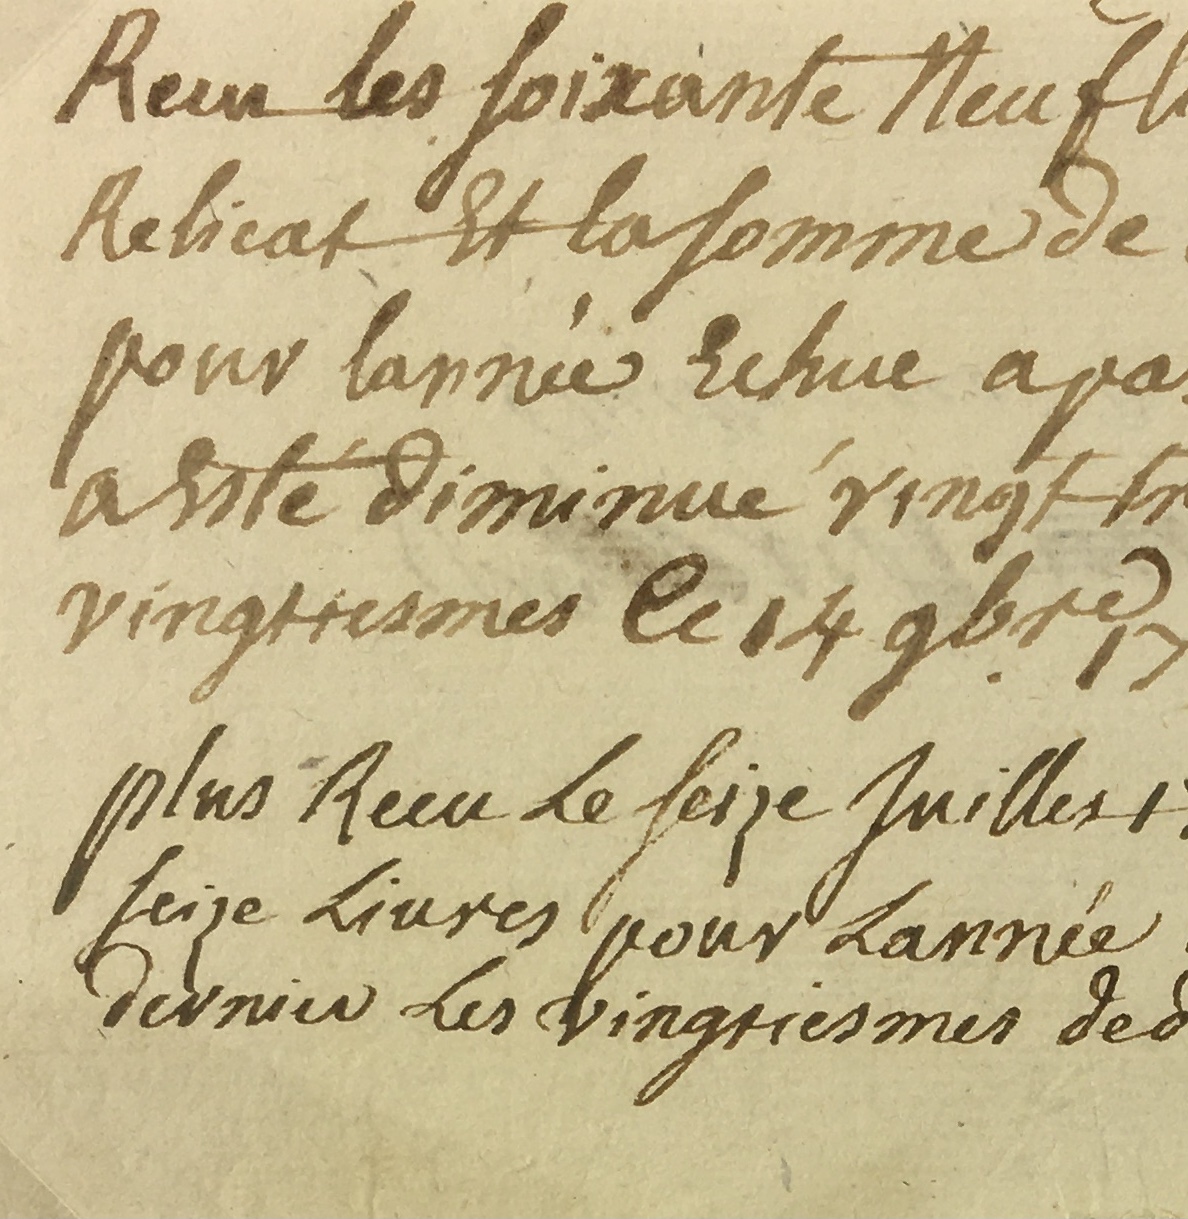 Receu les soixante Neuf
Relicat Et la somme de
pour lannée Echue a
a Esté diminué vingt
vingtiesmes le 14 9bre 17
plus Receu Le seize Juillet
seize Livres pour Lannée
dernier Les vingtiesmes